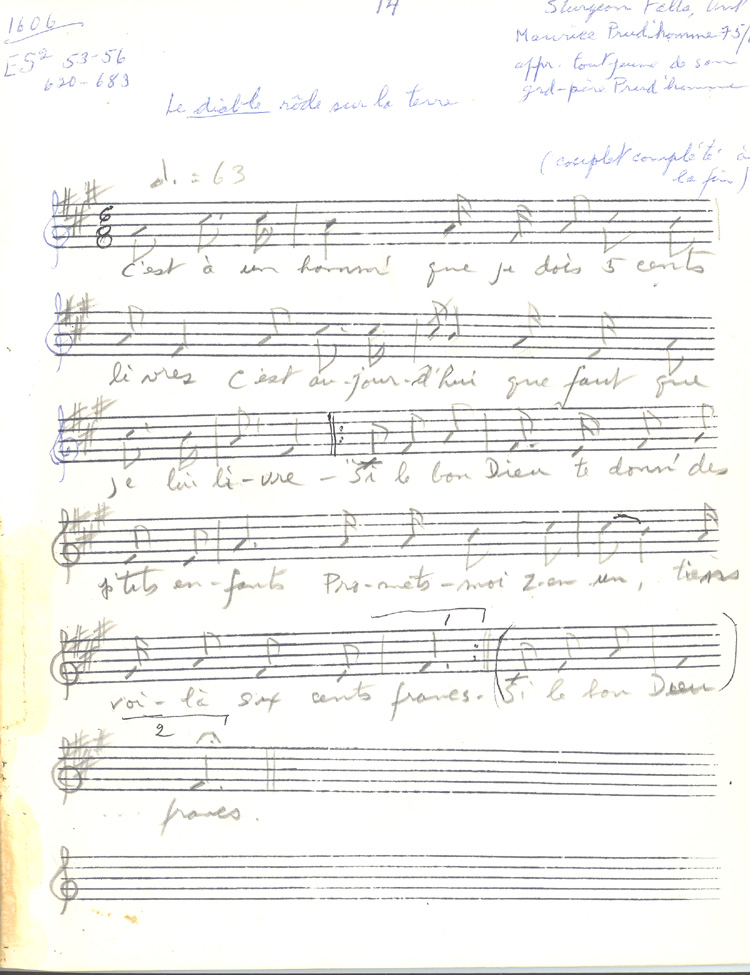 14
1606
ES² 53-56
620-683
Sturgeon Falls, Ont
Maurice Prud'homme 75/
appr. tout jeune de son
grd-père Prud'homme
Le diable rôde sur la terre
(couplet complété à
la fin)
♩. = 63
6
8
c'est à un homm' que je dois 5 cents
li vres c'est au-jour-d'hui que faut que
je lui li-vre - Si le bon Dieu te donn' des
p'tits en-fants Pro-mets-moi z-en un, tiens
voi-là six cents francs. (Si le bon Dieu)
1
2
francs.